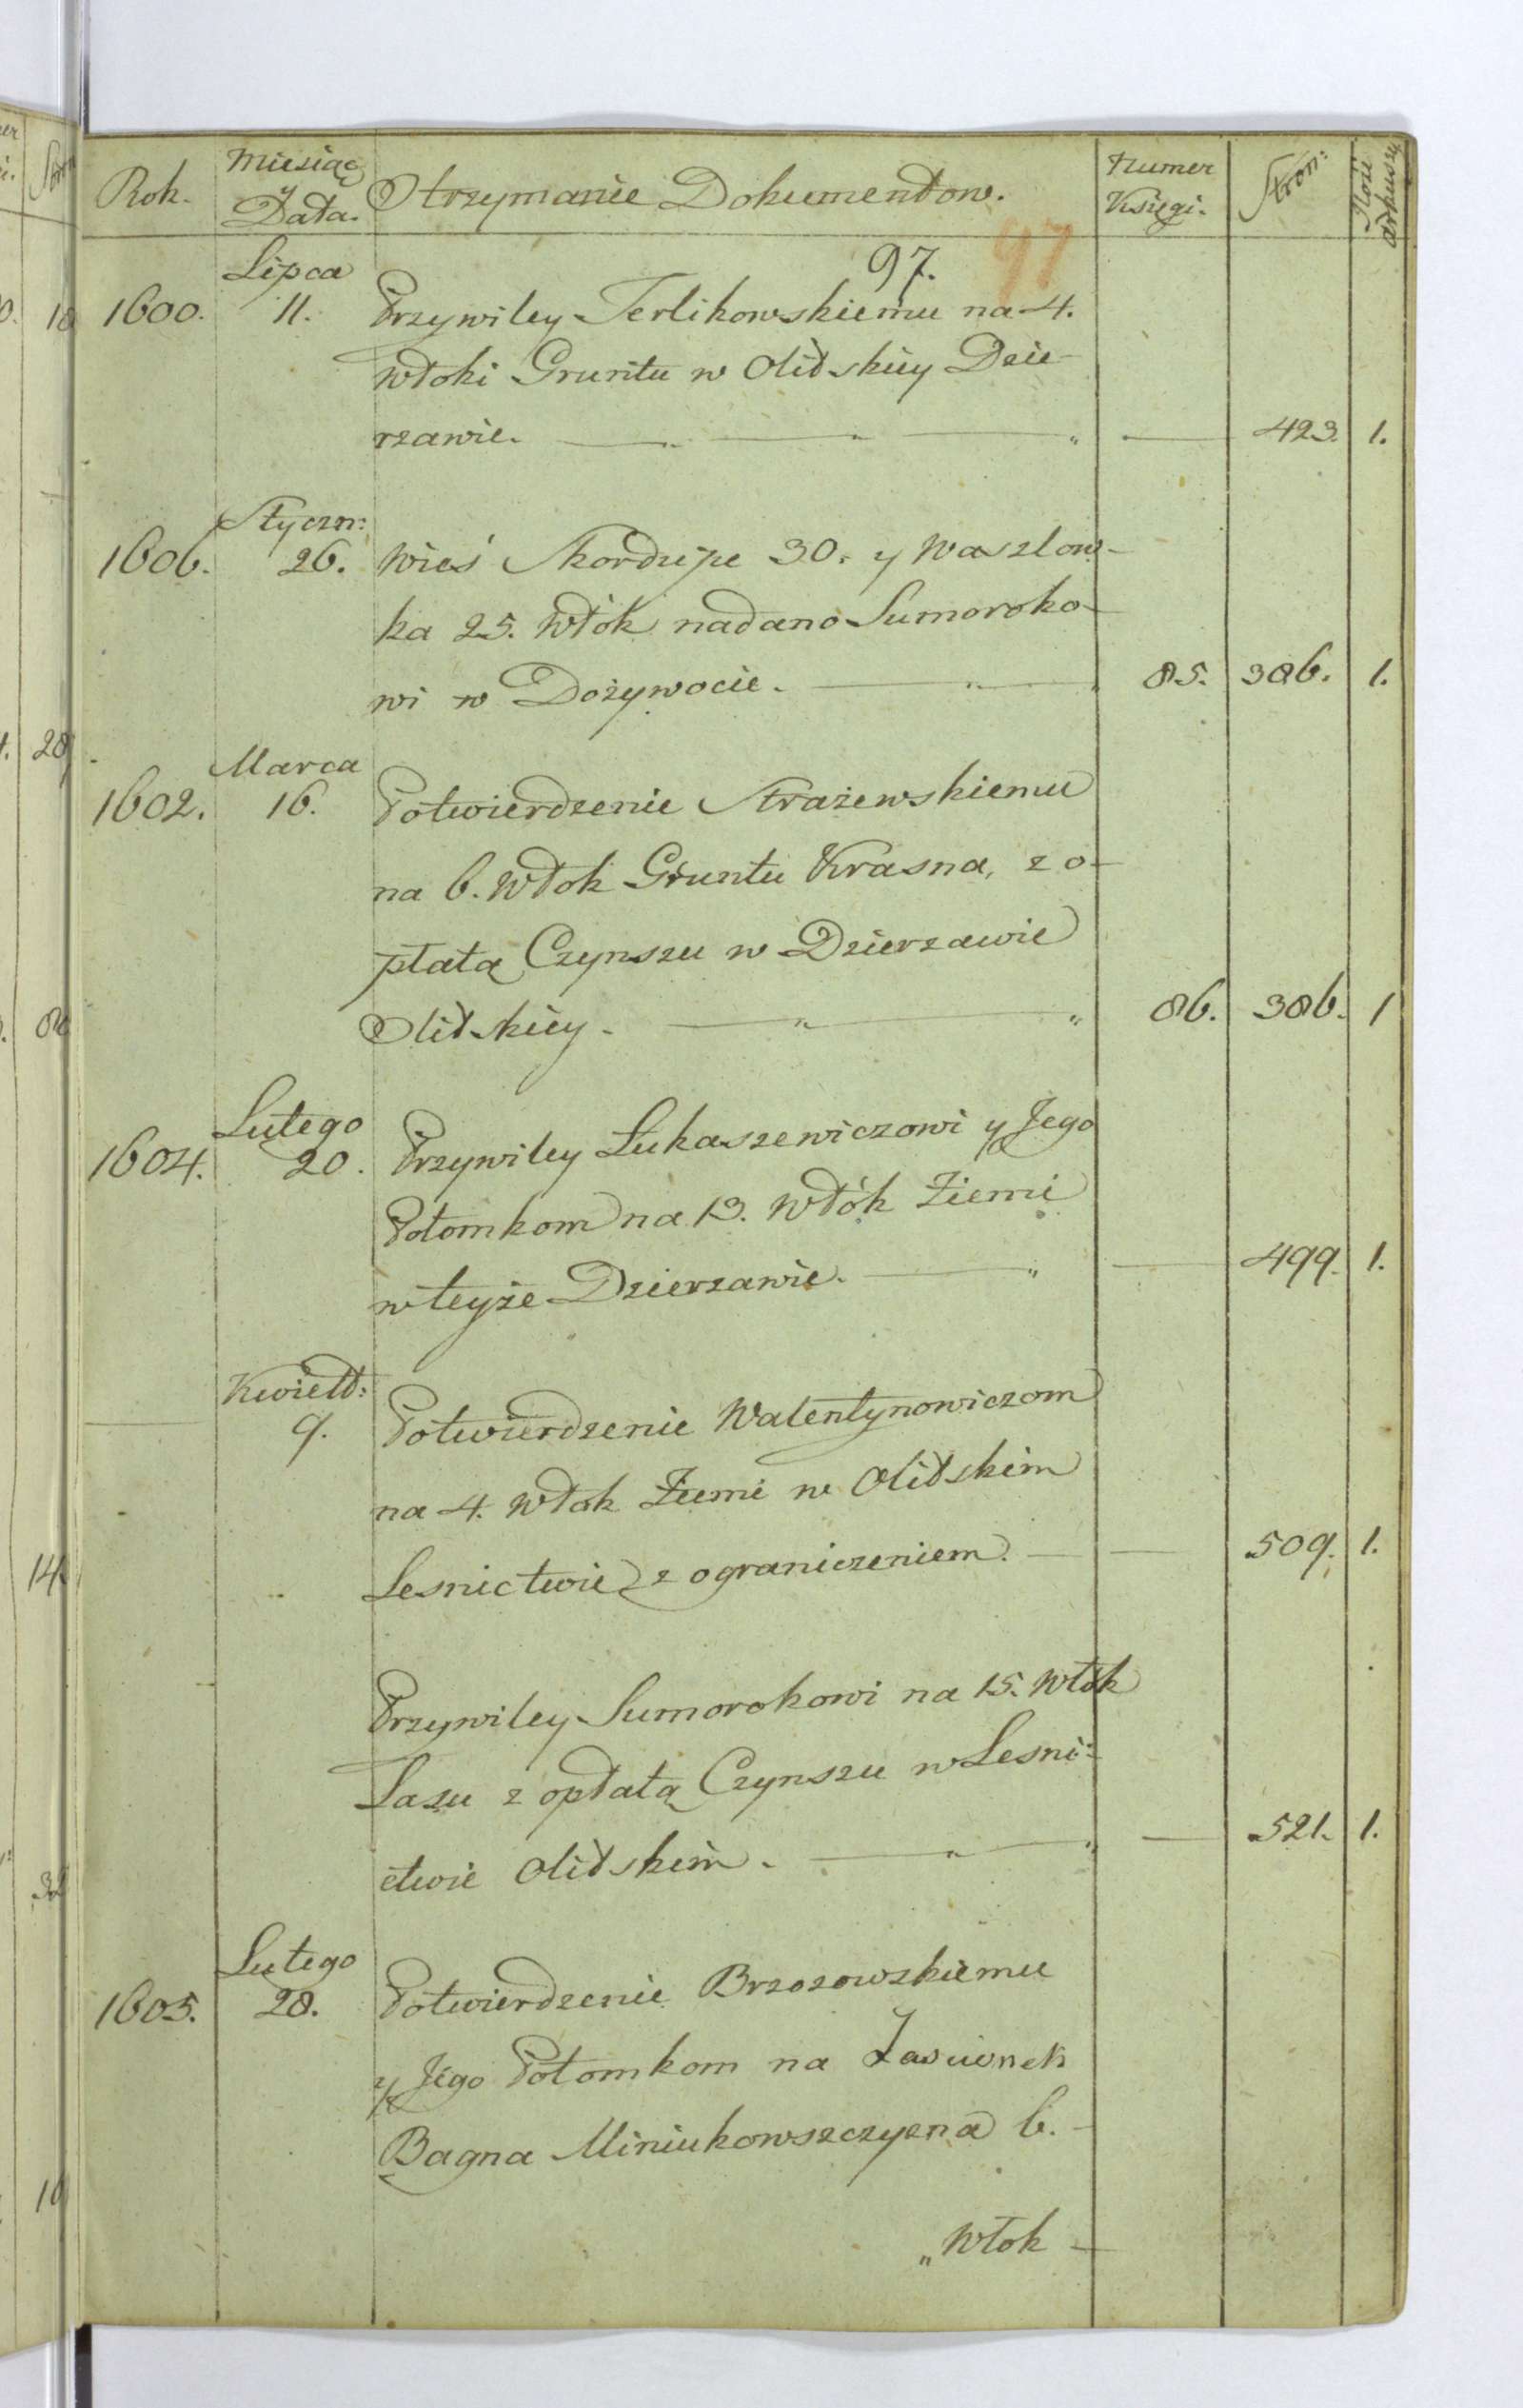 Rok. Miesiąc y Data. Otrzymanie Dokumentow. Numer Księgi. Stron: Ilość arkuszy
97. 97
Lipca
1600. 11. Przywiley Terlikowskiemu na 4.
włoki Gruntu w Olitskiey Dzie-
rzawie. — 423. 1.
Styczn:
1606. 26. Wieś Skordupe 30. y Waszlow-
ka 25. Włók nadano Sumoroko-
wi w Dożywocie. 85. 386. 1.
Marca
1602. 16. Potwierdzenie Strażewskiemu
na 6. Włok Gruntu Krasna, z o-
płatą Czynszu w Dzierzawie
Olitskiey. 86. 386. 1
Lutego
1604. 20. Przywiley Łukaszewiczowi y Jego
Potomkom na 13. Włók Ziemi
w teyże Dzierzawie. — 499. 1.
Kwiett:
— 9. Potwierdzenie Walentynowiczom
na 4. Włok Ziemi w Olitskim
Lesnictwie z ograniczeniem. — 509. 1.
Przywiley Sumorokowi na 15. Włók
Lasu z opłatą Czynszu w Lesni-
ctwie Olitskim. — 521. 1.
Lutego
1605. 28. Potwierdzenie Brzozowskiemu
y Jego Potomkom na Zascianek
Bagna Miniukowszczyzna 6. -
„Włok -